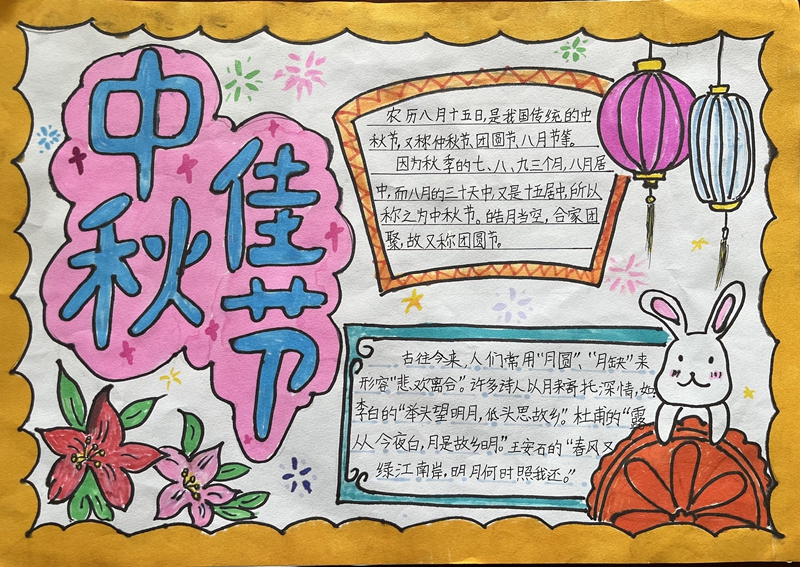 中秋
佳节
农历八月十五日,是我国传统的中
秋节,又称仲秋节、团圆节、八月节等。
因为秋季的七、八、九三个月,八月居
中,而八月的三十天中,又是十五居中,所以
称之为中秋节。皓月当空,合家团
聚,故又称团圆节。
古往今来,人们常用“月圆”、“月缺”来
形容“悲欢离合”。许多诗人以月来寄托深情,如
李白的“举头望明月,低头思故乡。”杜甫的“露
从今夜白,月是故乡明。”王安石的“春风又
绿江南岸,明月何时照我还。”